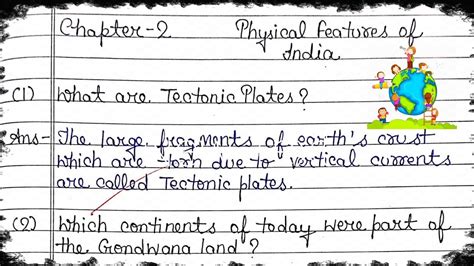 Chapter-2 Physical features of
India
(1) What are Tectonic Plates?
Ans- The large fragments of earth's crust
which are torn due to vertical currents
are called Tectonic plates.
(2) Which continents of today were part of
the Gondwana land?